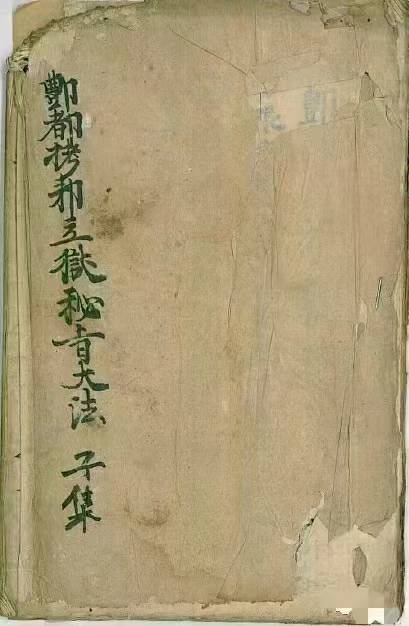 酆都拷邪立獄秘旨大法 子集